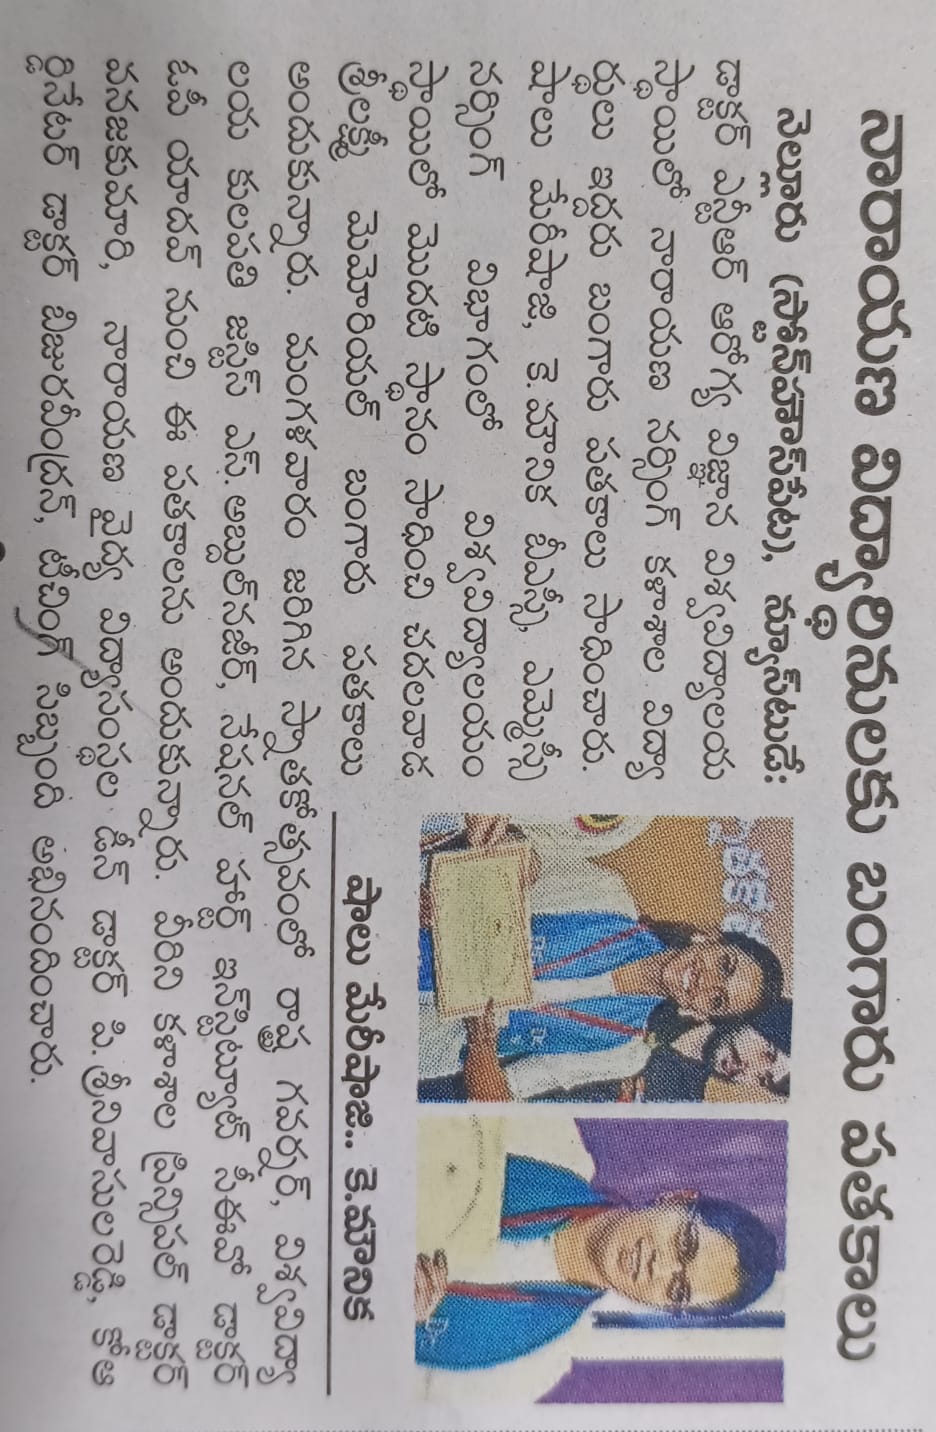 నారాయణ విద్యార్థినులకు బంగారు పతకాలు
నెల్లూరు (స్టోన్‌హౌస్‌పేట), న్యూస్‌టుడే:
డాక్టర్ ఎన్టీఆర్ ఆరోగ్య విజ్ఞాన విశ్వవిద్యాలయ
స్థాయిలో నారాయణ నర్సింగ్ కళాశాల విద్యా
ర్థులు ఇద్దరు బంగారు పతకాలు సాధించారు.
షాలు మేరీషాజి, కె.మౌనిక బీఎస్సీ, ఎమ్మెస్సీ
నర్సింగ్ విభాగంలో విశ్వవిద్యాలయం
స్థాయిలో మొదటి స్థానం సాధించి వదలవాడ
శ్రీలక్ష్మీ మెమోరియల్ బంగారు పతకాలు
షాలు మేరీషాజి.. కె.మౌనిక
అందుకున్నారు. మంగళవారం జరిగిన స్నాతకోత్సవంలో రాష్ట్ర గవర్నర్, విశ్వవిద్యా
లయ కులపతి జస్టిస్ ఎస్.అబ్దుల్‌నజీర్, నేషనల్ హార్ట్ ఇన్‌స్టిట్యూట్ సీఈవో డాక్టర్
ఓపి యాదవ్ నుంచి ఈ పతకాలను అందుకున్నారు. వీరిని కళాశాల ప్రిన్సిపల్ డాక్టర్
వనజకుమారి, నారాయణ వైద్య విద్యాసంస్థల డీన్ డాక్టర్ బి.శ్రీనివాసులరెడ్డి, కోఆ
ర్డినేటర్ డాక్టర్ బిజురవీంద్రన్, టీచింగ్ సిబ్బంది అభినందించారు.